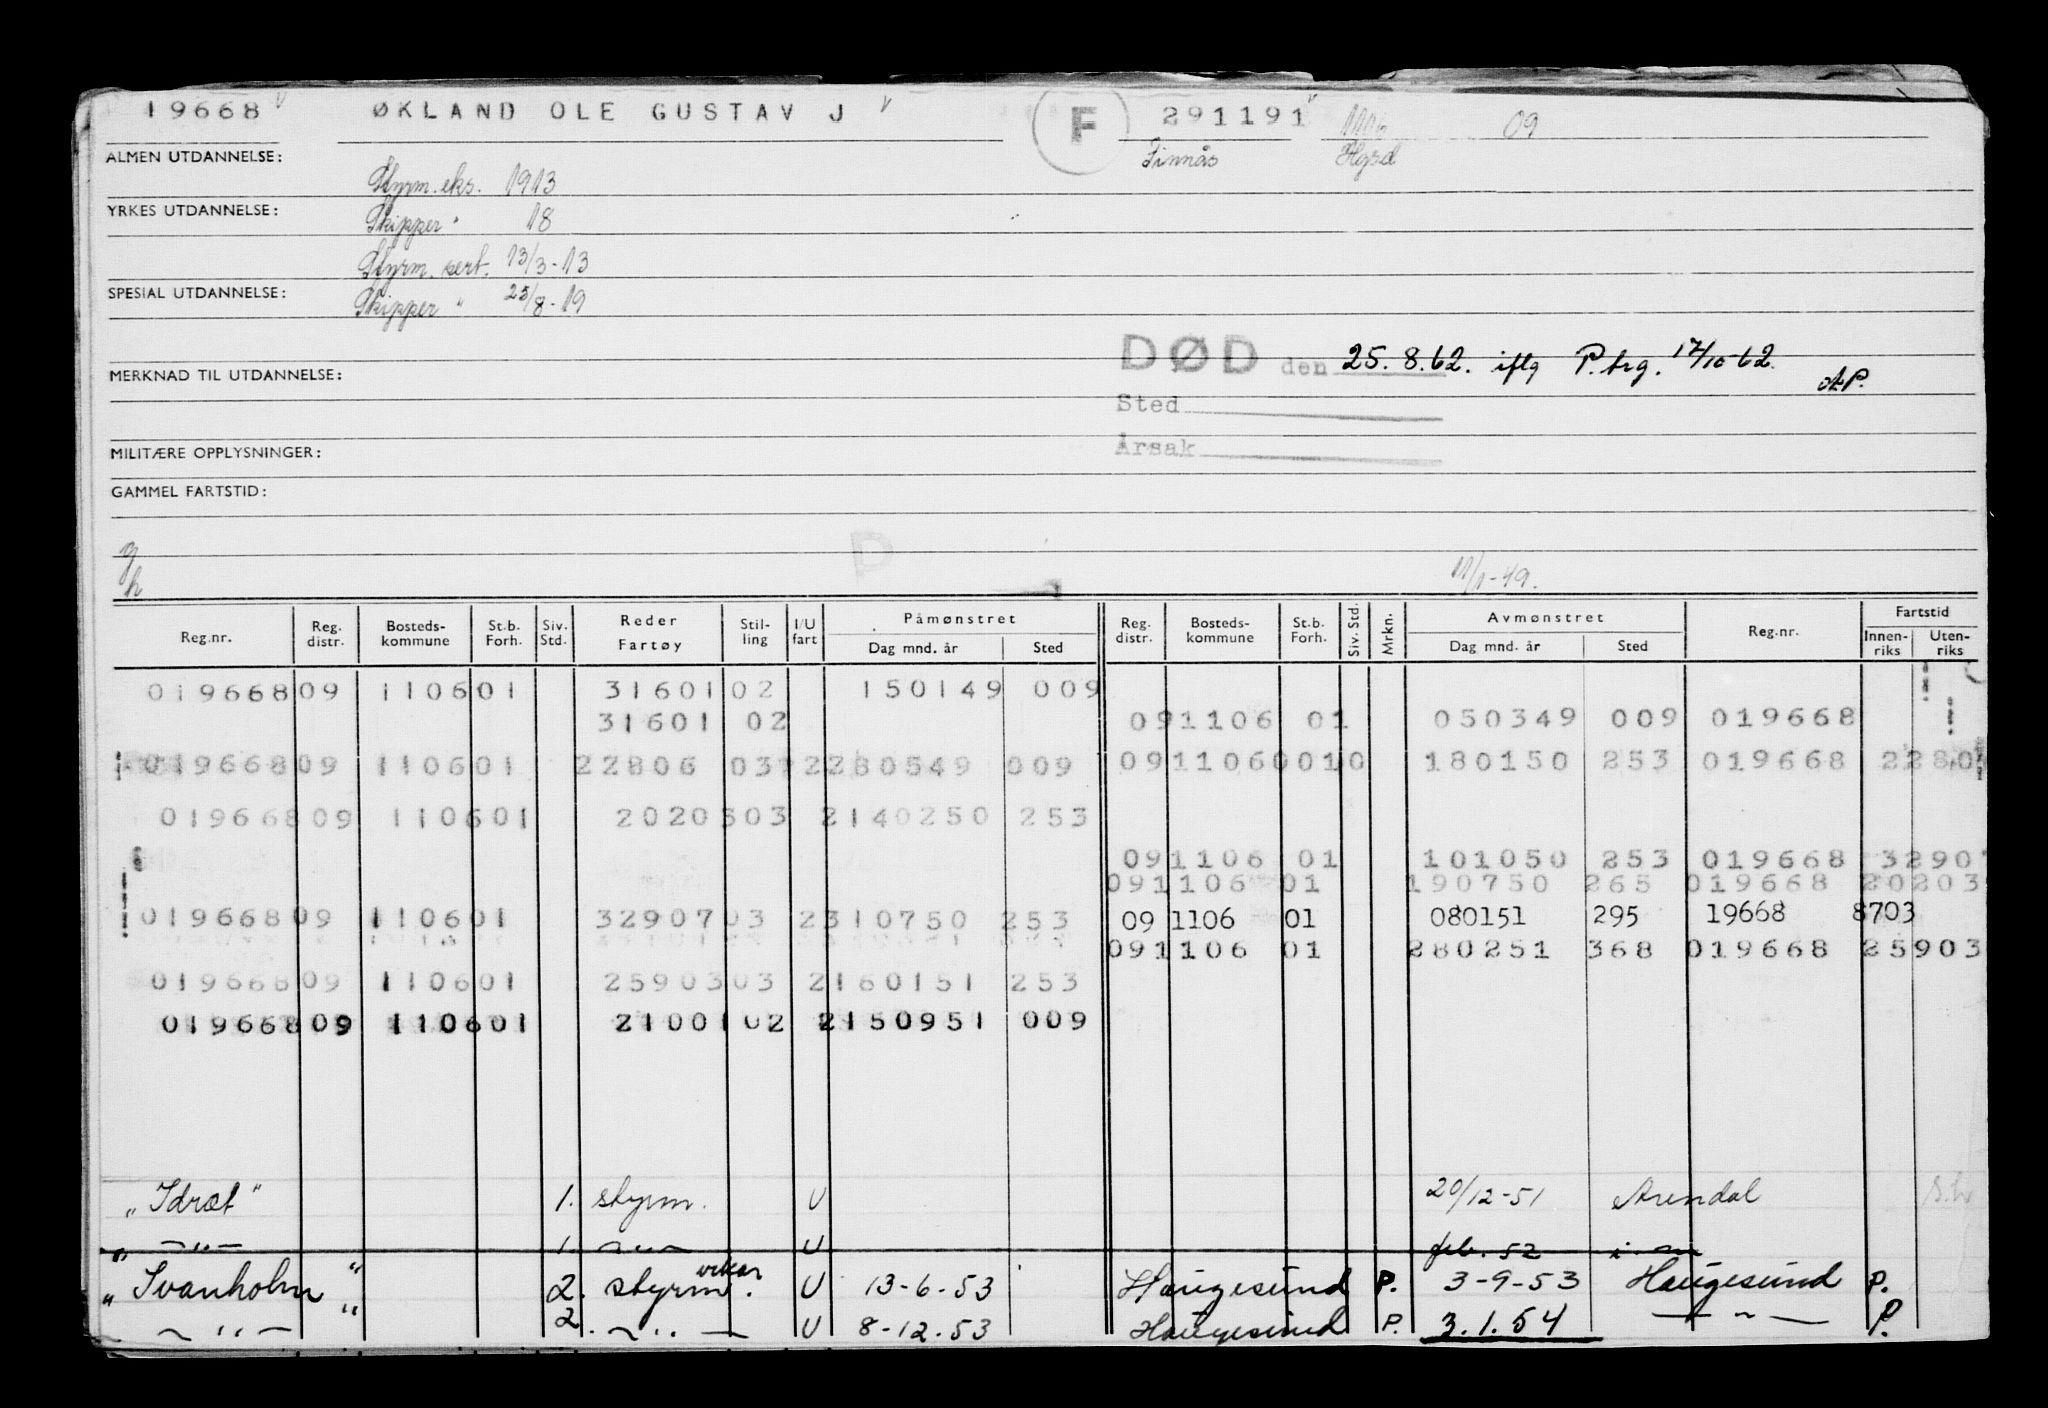 19668 ØKLAND OLE GUSTAV J F 291191 1106 09
ALMEN UTDANNELSE: Finnås Hgsd
Styrm. eks. 1913
YRKES UTDANNELSE: Skipper " 18
Styrm. sert. 13/3-13
SPESIAL UTDANNELSE: Skipper " 25/8-19
DØD den 25.8.62. iflg P.brg. 17/10-62.
MERKNAD TIL UTDANNELSE: AP.
Sted
Årsak
MILITÆRE OPPLYSNINGER:
GAMMEL FARTSTID:
P
g/h 11/1-49.
Reg.nr. Reg. distr. Bosteds-kommune St.b. Forh. Siv. Std. Reder Fartøy Stil-ling I/U fart Påmønstret Dag mnd. år Sted Reg. distr. Bosteds-kommune St.b. Forh. Siv. Std. Mrkn. Avmønstret Dag mnd. år Sted Reg.nr. Fartstid Innen-riks Uten-riks
019668 09 1106 01 31601 02 150149 009
31601 02 09 1106 01 050349 009 019668
019668 09 1106 01 22806 03 2 280549 009 09 1106 0010 180150 253 019668 2280
019668 09 1106 01 20203 03 2 140250 253
09 1106 01 101050 253 019668 32907
09 1106 01 190750 265 019668 20203
019668 09 1106 01 32907 03 2 310750 253 09 1106 01 080151 295 19668 8703
09 1106 01 280251 368 019668 25903
019668 09 1106 01 25903 03 2 160151 253
019668 09 1106 01 21001 02 2 150951 009
"Idræt" 1. styrm. U 20/12-51 Arendal
" — " — 1. — " — U feb. 52 i. m
"Ivanholm" 2. styrm. vikar U 13-6-53 Haugesund P. 3-9-53 Haugesund P.
— " — " 2. — " — U 8-12.53 Haugesund P. 3.1.54 — " — P.